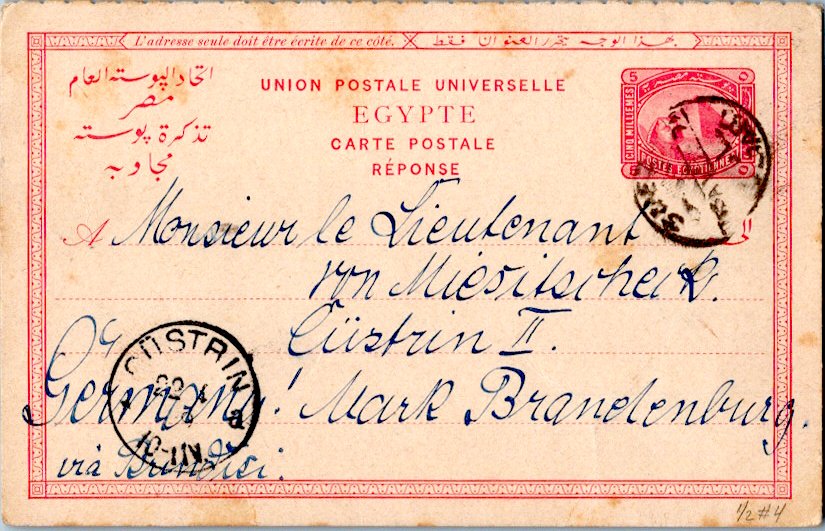 L'adresse seule doit être écrite de ce côté.
بهذا الوجه يحرر العنوان فقط
اتحاد البوسته العام
مصر
تذكرة بوسته
مجاوبه
UNION POSTALE UNIVERSELLE
EGYPTE
CARTE POSTALE
RÉPONSE
5 5
CINQ MILLIEMES
POSTES EGYPTIENNES
A Monsieur le Lieutenant
von Miesitscheck.
Cüstrin II.
Germany! Mark Brandenburg.
viâ Brindisi.
CÜSTRIN
a
1/2 #4